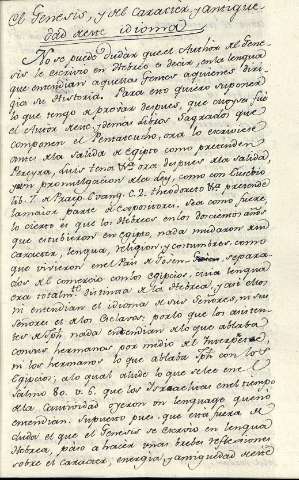 El Genesis, y del Caracter, y antigue-
dad de este idioma
No se puede dudar que el Author del Gene-
sis le escrivio en Hebreo es decir, en la lengua
que entendian aquellas Gentes a quienes diri-
gia su Historia. Para esto quiero suponer
lo que tengo de provar despues, que Moyses fue
el Autor de este, y demas Libros Sagrados que
componen el Pentateucho, ora lo escriviese
antes de la Salida de Egipto como pretenden
Pereyra, ora despues de la salida,
y promulgacion de la ley, como con Eusebio
lib. 7. de Præp. Evang. C. 2. Theodoreto &a pretende
la maior parte de Expositores. Sea como fuere,
lo cierto es que los Hebreos en los docientos años
que estubieron en Egipto, nada mudaron su
Caracter, lengua, religion y costumbres. como
que vivieron en el Pais de Gosen separa-
dos del comercio con los Egipcios, cuia lengua
era totalmte distinta de la Hebrea, y asi ellos
ni entendian el idioma de sus Señores, ni sus
Señores el de los Esclavos; por lo que los asisten-
tes de Jph, nada entendian de lo que ablaba
con sus hermanos por medio del Interprete,
ni los hermanos lo que ablaba Jph con los
Egipcios, a lo qual alude lo que se lee en el
Salmo 80. v. 6. que los Israelitas en el tiempo
de la Cautividad oyeron un lenguage que no
entendian. Supuesto pues que está fuera de
duda el que el Genesis se escrivio en lengua
Hebrea, paso a hacer unas brebes reflexiones
sobre el caracter, energia, y antiguedad de este